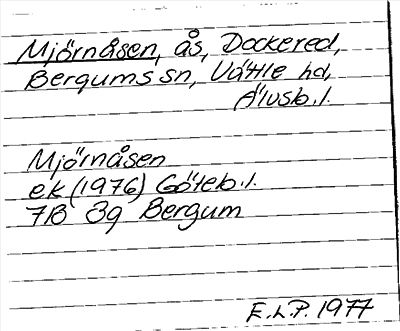 Mjörnåsen, ås, Dockered,
Bergums sn, Vättle hd,
Älvsb.l.
Mjörnåsen
ek (1976) Göteb.l.
7B 8g Bergum
E.L.P. 1977